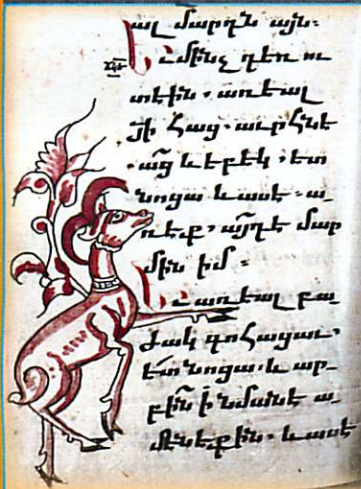 ալ մարդն այն։
Եւ մինչ դեռ ու
տէին. առեալ
յի հաց. աւրհնե
աց և եբեկ. ետ
նոցա և ասէ. ա
ռէք. այդ է մար
մին իմ։
Եւ առեալ բա
ժակ գոհացաւ.
ետ նոցա. և ար
բին ի նմանէ ա
մենեքին. և ասէ